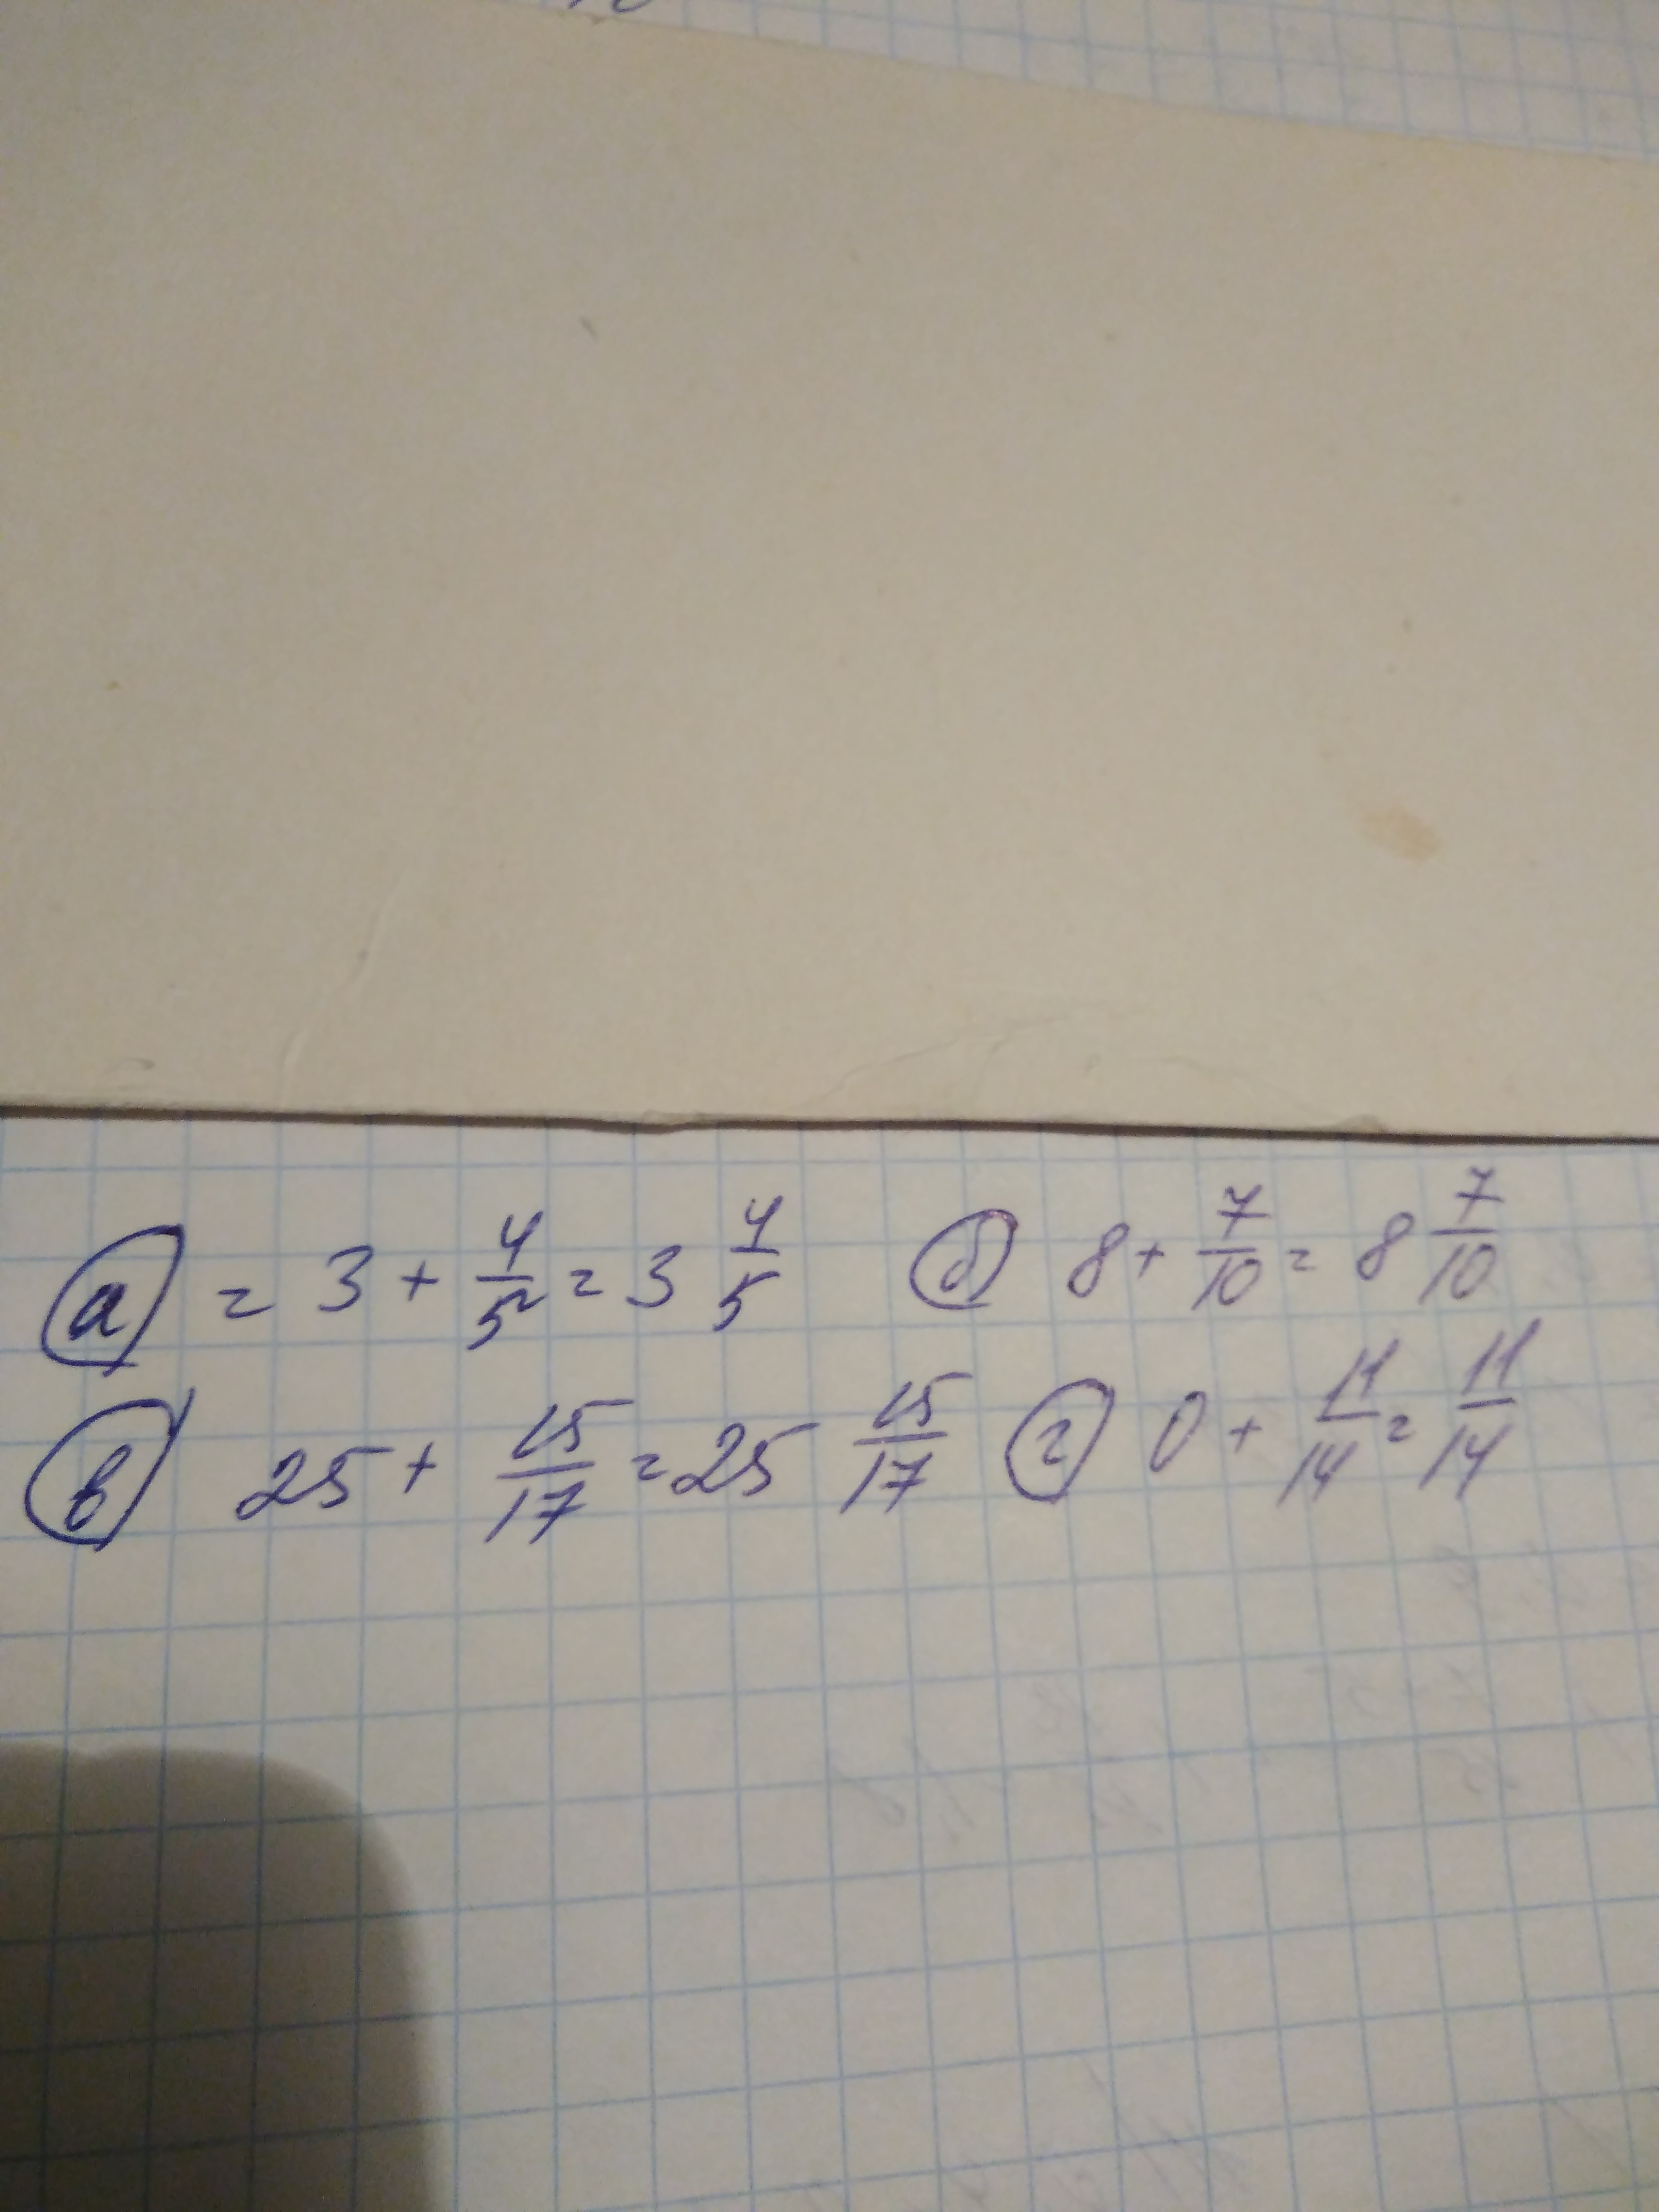 а = 3 + 4/5 = 3 4/5 б 8 + 7/10 = 8 7/10
в 25 + 15/17 = 25 15/17 г 0 + 11/14 = 11/14